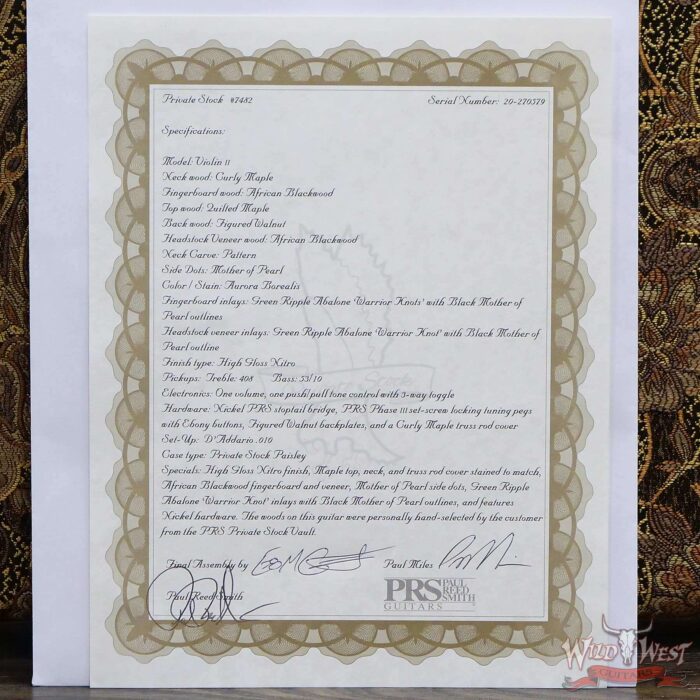 Private Stock #7482 Serial Number: 20-270379
Specifications:
Model: Violin II
Neck wood: Curly Maple
Fingerboard wood: African Blackwood
Top wood: Quilted Maple
Back wood: Figured Walnut
Headstock Veneer wood: African Blackwood
Neck Carve: Pattern
Side Dots: Mother of Pearl
Color / Stain: Aurora Borealis
Fingerboard inlays: Green Ripple Abalone 'Warrior Knots' with Black Mother of
Pearl outlines
Headstock veneer inlays: Green Ripple Abalone 'Warrior Knot' with Black Mother of
Pearl outline
Finish type: High Gloss Nitro
Pickups: Treble: 408 Bass: 53/10
Electronics: One volume, one push/pull tone control with 3-way toggle
Hardware: Nickel PRS stoptail bridge, PRS Phase III set-screw locking tuning pegs
with Ebony buttons, Figured Walnut backplates, and a Curly Maple truss rod cover
Set-Up: D'Addario .010
Case type: Private Stock Paisley
Specials: High Gloss Nitro finish, Maple top, neck, and truss rod cover stained to match,
African Blackwood fingerboard and veneer, Mother of Pearl side dots, Green Ripple
Abalone 'Warrior Knot' inlays with Black Mother of Pearl outlines, and features
Nickel hardware. The woods on this guitar were personally hand-selected by the customer
from the PRS Private Stock Vault.
Final Assembly by Paul Miles
Paul Reed Smith
PRS PAUL
REED
SMITH
GUITARS
WILD WEST
GUITARS